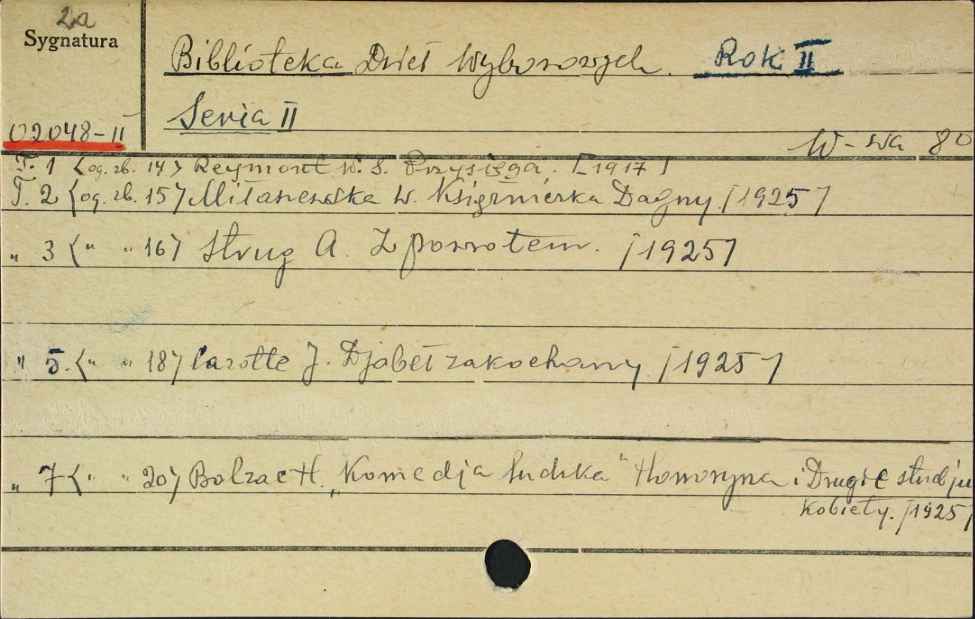 2a
Sygnatura
Biblioteka Dzieł Wyborowych. Rok II
Seria II
02048-II
W-wa 80
T. 1 <og. zb. 14> Reymont W. S. Przysięga. [1917]
T. 2 <og. zb. 15> Milaszewska W. Księżnierka Dagny. [1925]
„ 3 <„ „ 16> Strug A. Z powrotem. [1925]
„ 5. <„ „ 18> Cazotte J. Djabeł zakochany [1925]
„ 7 <„ „ 20> Balzac H. „Komedja ludzka" Honoryna i Drugie studjum
kobiety. [1925]